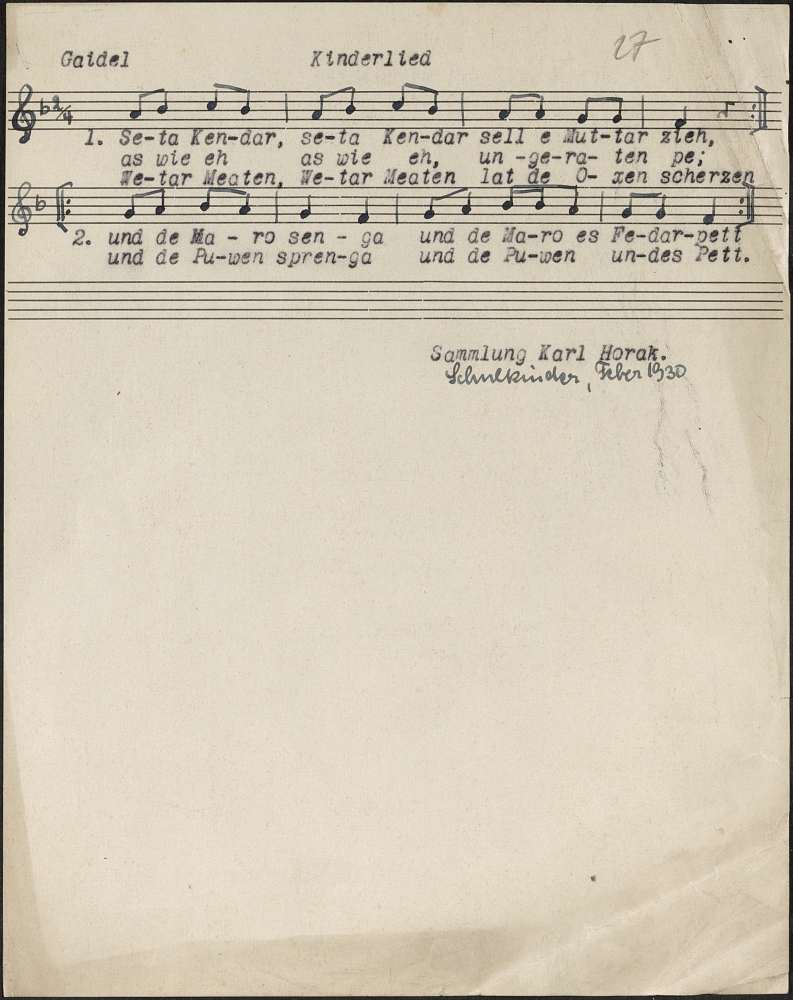 27
Gaidel Kinderlied
2/4
1. Se-ta Ken-dar, se-ta Ken-dar sell e Mut-tar zieh,
as wie eh as wie eh, un-ge-ra- ten pe;
We-tar Meaten, We-tar Meaten lat de O- xen scherzen
2. und de Ma - ro sen - ga und de Ma-ro es Fe-dar-pett
und de Pu-wen spren-ga und de Pu-wen un-des Pett.
Sammlung Karl Horak.
Schulkinder, Feber 1930